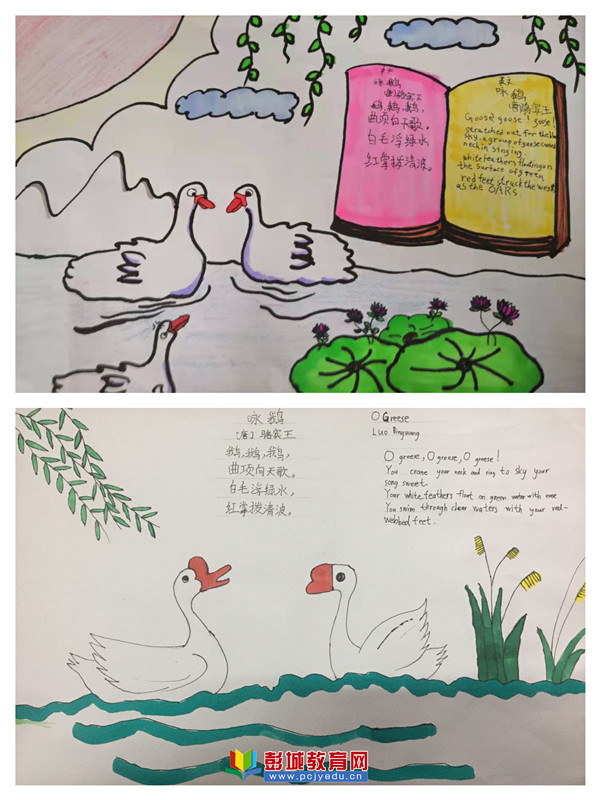 咏鹅
(唐)骆宾王
鹅,鹅,鹅,
曲项向天歌。
白毛浮绿水
红掌拨清波。
咏鹅
唐骆宾王
Goose! goose! goose!
stratched out for the blue
sky, a group of geese curved
neck in singing.
white feathers floating on
the surface of green
red feet struck the
as the OARS
咏鹅
[唐] 骆宾王
鹅,鹅,鹅,
曲项向天歌。
白毛浮绿水,
红掌拨清波。
O Greese
Luo Bingwang
O greese, O greese, O greese!
You crane your neck and ring to sky your
song sweet.
Your white feathers float on green water with ease
You swim through clear waters with your red-
webbed feet.
彭城教育网
www.pcjyedu.cn